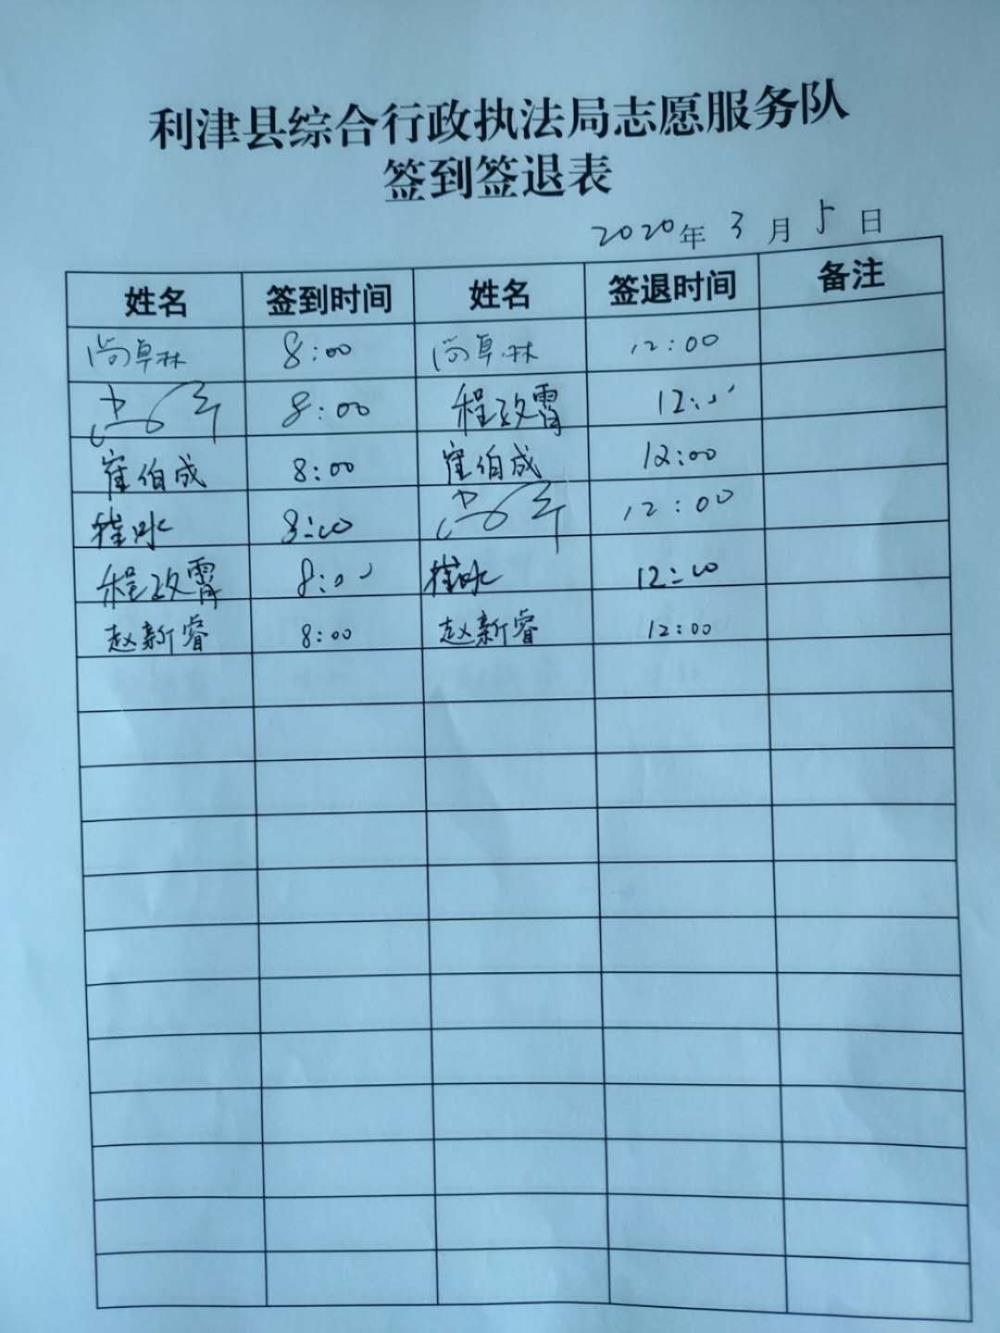 利津县综合行政执法局志愿服务队
签到签退表
2020年 3 月 5 日
姓名 签到时间 姓名 签退时间 备注
尚卓林 8:00 尚卓林 12:00
8:00 程政霄 12:00
崔伯成 8:00 崔伯成 12:00
8:00 12:00
程政霄 8:00 12:00
赵新睿 8:00 赵新睿 12:00